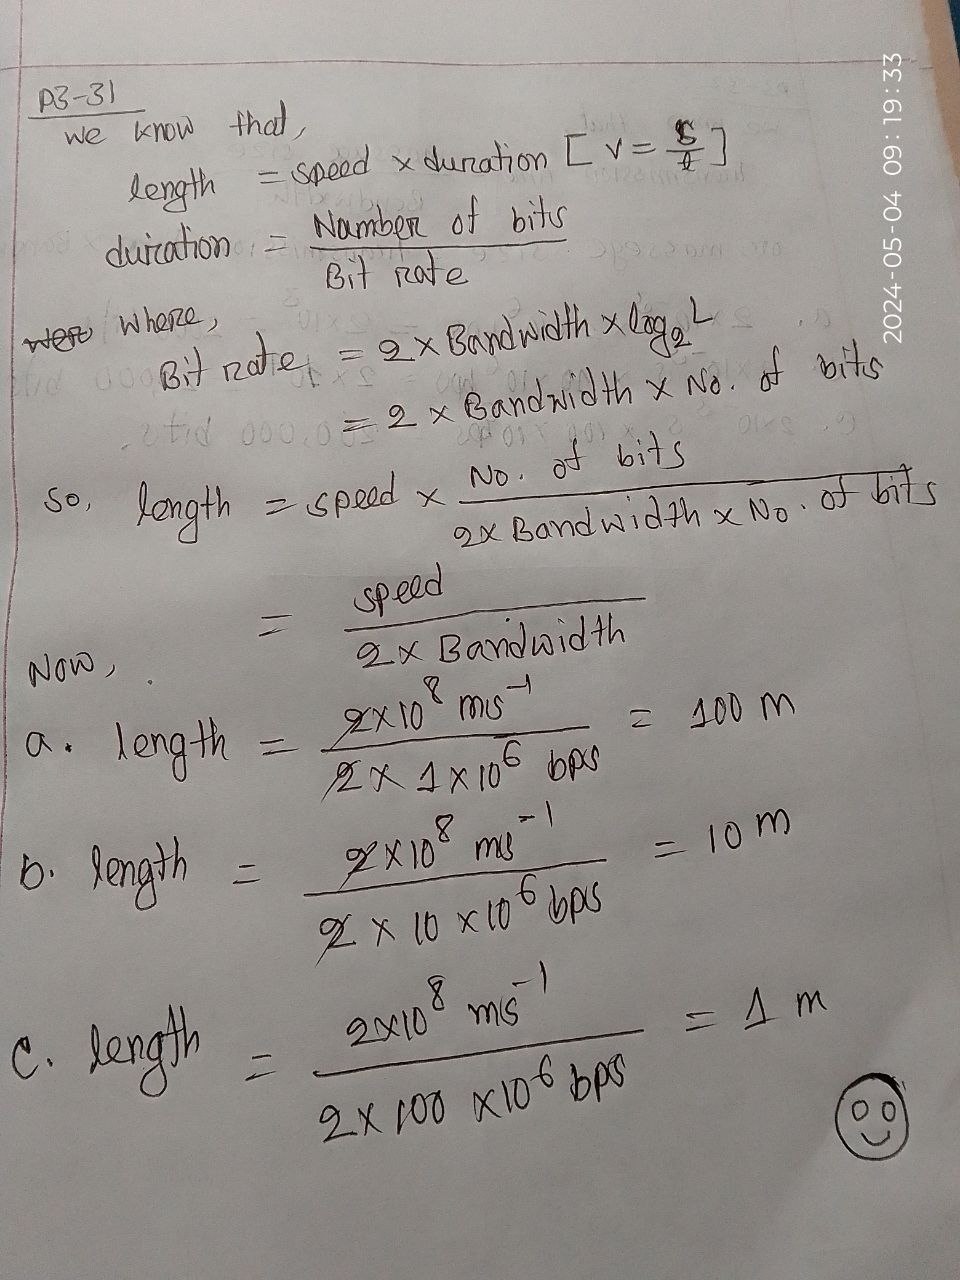 P3-31
we know that,
length = speed x duration [ v = s/t ]
duration = Number of bits / Bit rate
where,
Bit rate = 2 x Bandwidth x log₂L
= 2 x Bandwidth x No. of bits
So, length = speed x No. of bits / 2x Bandwidth x No. of bits
= speed / 2x Bandwidth
Now,
a. length = 2x10⁸ ms⁻¹ / 2 x 1 x 10⁶ bps = 100 m
b. length = 2x10⁸ ms⁻¹ / 2 x 10 x 10⁶ bps = 10 m
c. length = 2x10⁸ ms⁻¹ / 2 x 100 x 10⁶ bps = 1 m
2024-05-04 09:19:33